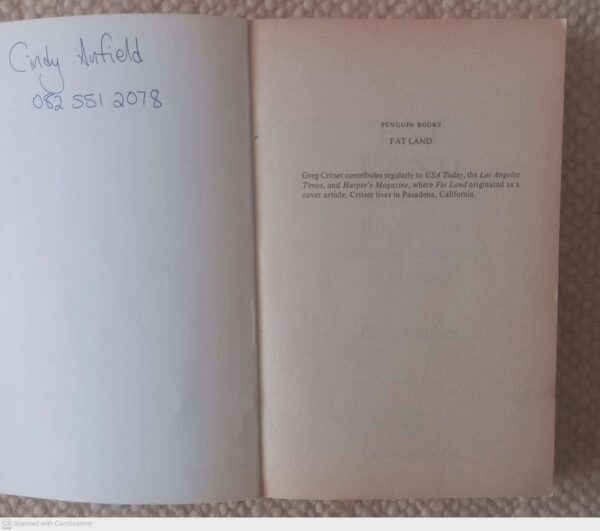 Cindy Anfield
082 551 2078
PENGUIN BOOKS
FAT LAND
Greg Critser contributes regularly to USA Today, the Los Angeles
Times, and Harper's Magazine, where Fat Land originated as a
cover article. Critser lives in Pasadena, California.
CS Scanned with CamScanner